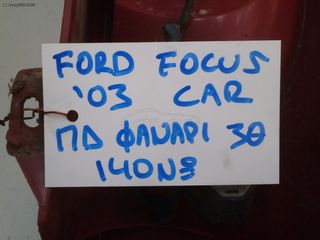 FORD FOCUS
'03 CAR
ΠΔ ΦΑΝΑΡΙ 3Θ